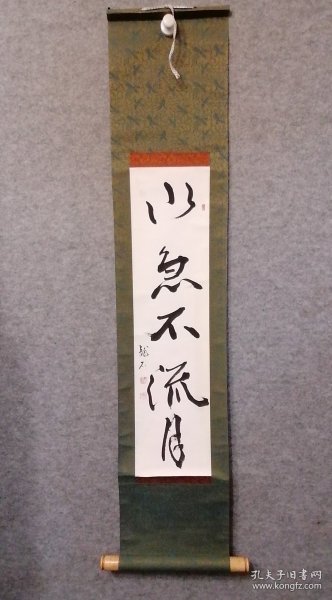 水急不流月
孔夫子旧书网
www.kongfz.com